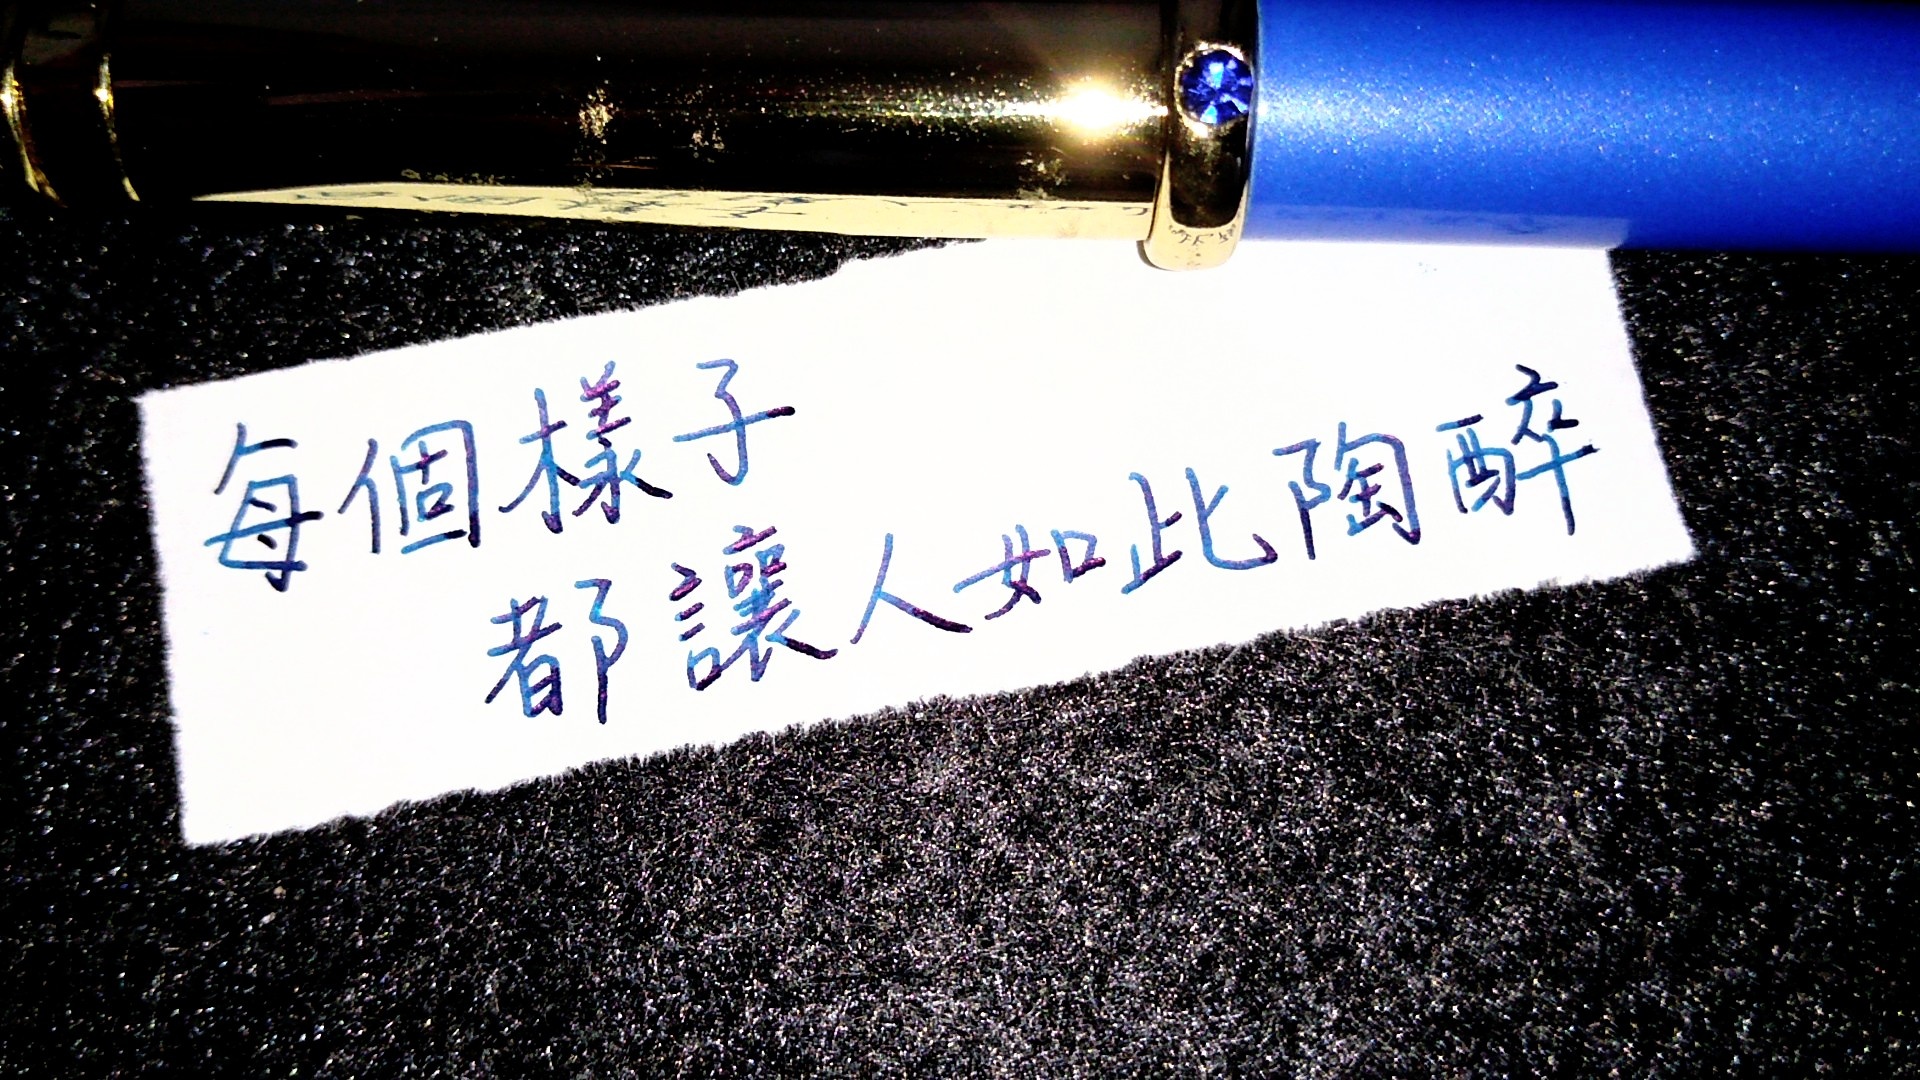 每個樣子
都讓人如此陶醉